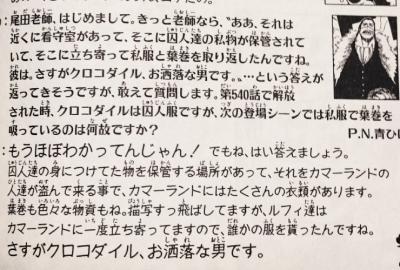 ：尾田老師、はじめまして。きっと老師なら、"ああ、それは
近くに看守室があって、そこに囚人達の私物が保管されて
いて、そこに立ち寄って私服と葉巻を取り返したんですね。
彼は。さすがクロコダイル、お洒落な男です。"…という答えが
返ってきそうですが、敢えて質問します。第540話で解放
された時、クロコダイルは囚人服ですが、次の登場シーンでは私服で葉巻を
吸っているのは何故ですか？
P.N.青ひ
：もうほぼわかってんじゃん！でもね、はい答えましょう。
囚人達の身につけてた物を保管する場所があって、それをカマーランドの
人達が盗んで来る事で、カマーランドにはたくさんの衣類があります。
葉巻も色々な物資もね。描写すっ飛ばしてますが、ルフィ達は
カマーランドに一度立ち寄ってますので、誰かの服を貰ったんですね。
さすがクロコダイル、お洒落な男です。